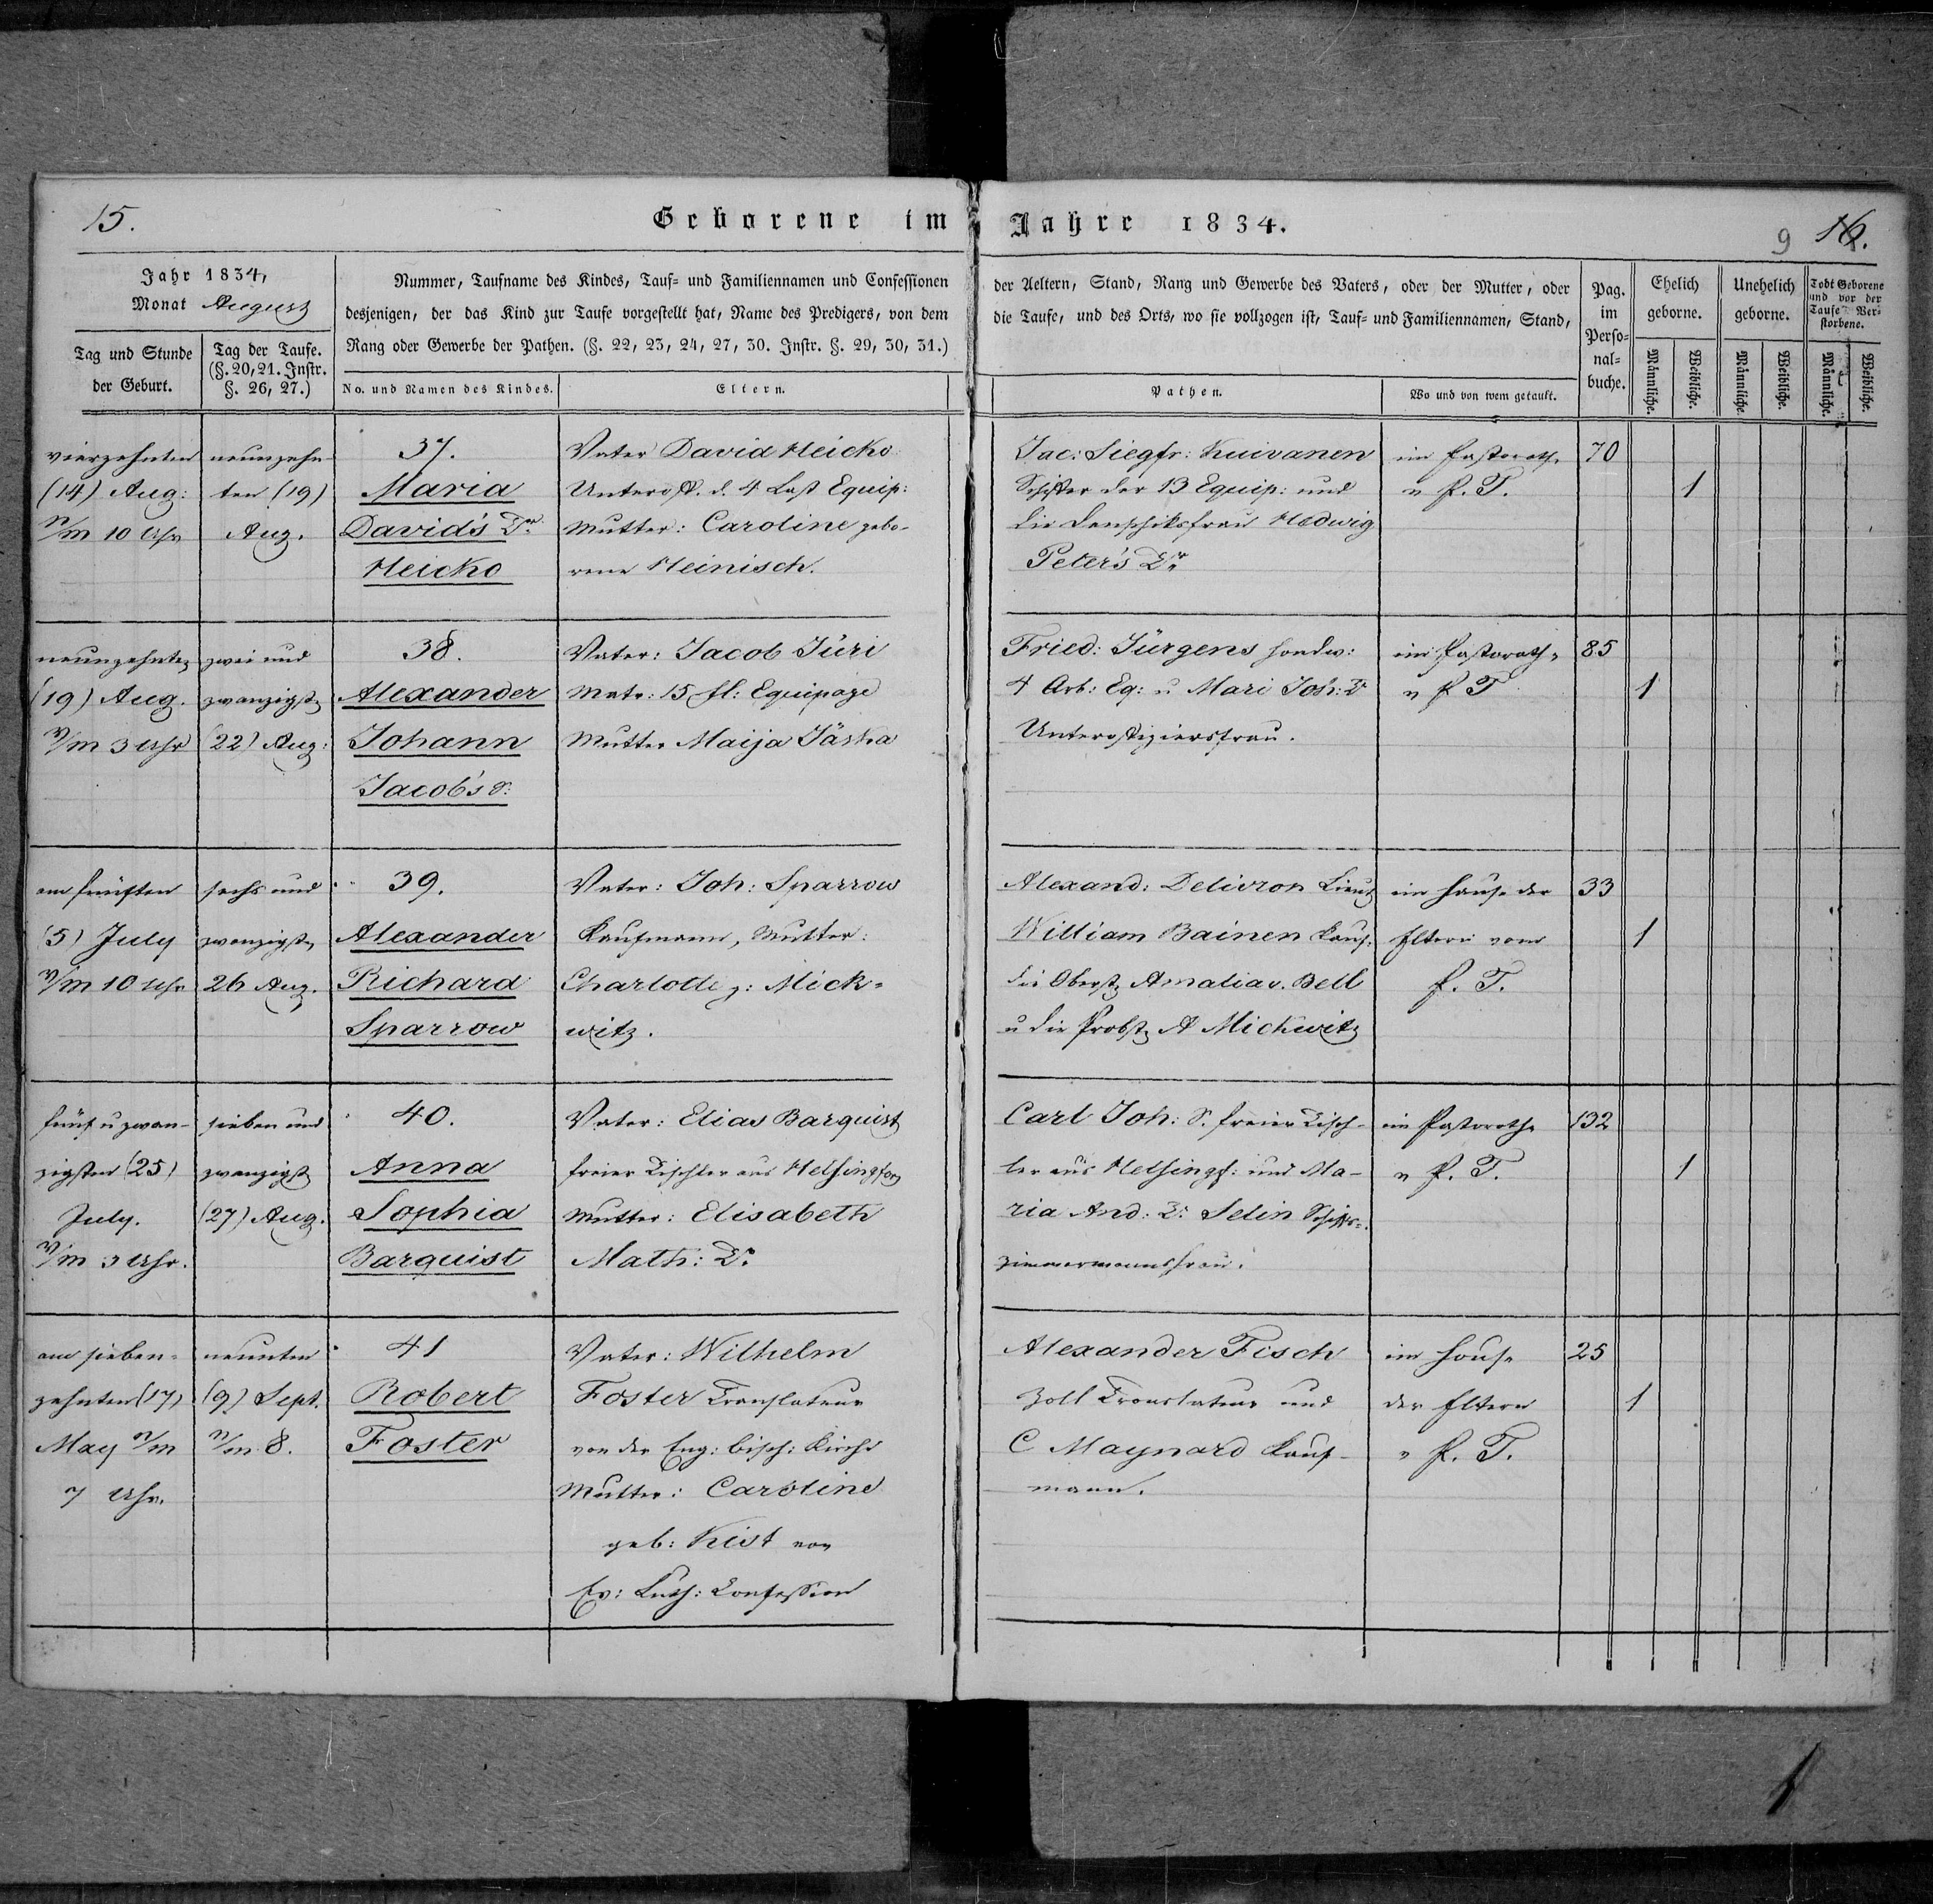 15.
Geborene im Jahre 1834.
9 16.
Jahr 1834,
Monat August
Tag und Stunde
der Geburt.
Tag der Taufe.
(§. 20, 21. Instr.
§. 26, 27.)
Nummer, Taufname des Kindes, Tauf- und Familiennamen und Confessionen
desjenigen, der das Kind zur Taufe vorgestellt hat, Name des Predigers, von dem
Rang oder Gewerbe der Pathen. (§. 22, 23, 24, 27, 30. Instr. §. 29, 30, 31.)
No. und Namen des Kindes.
Eltern.
der Aeltern, Stand, Rang und Gewerbe des Vaters, oder der Mutter, oder
die Taufe, und des Orts, wo sie vollzogen ist, Tauf- und Familiennamen, Stand,
Pathen.
Wo und von wem getauft.
Pag.
im
Perso-
nal-
buche.
Ehelich
geborne.
Unehelich
geborne.
Todt Geborene
und vor der
Taufe Ver-
storbene.
Männliche.
Weibliche.
Männliche.
Weibliche.
Männliche.
Weibliche.
vierzehnten
(14) Aug:
n/m 10 Uhr
neunzehn-
ten (19)
Aug.
37.
Maria
David's Dr
Heicko
Vater David Heicko
Unteroff. d. 4 Last Equip:
Mutter: Caroline gebo-
rene Heinisch.
Jac: Siegfr: Kuivanen
Schiffer der 13 Equip: und
die Denschiksfrau Hedwig
Peter's Dr
im Pastorath
v. P. T.
70
1
neunzehnten
(19) Aug.
v/m 3 Uhr
zwei und
zwanzigsten
(22) Aug:
38.
Alexander
Johann
Jacob's S:
Vater: Jacob Jüri
Matr: 15 fl: Equipage
Mutter Maija Jäska
Fried: Jürgens Handw:
4 Arb: Eq: u Mari Joh: Dr
Unteroffiziersfrau.
im Pastorath
v P T
85
1
am fünften
(5) July
v/m 10 Uhr
sechs und
zwanzigsten
26 Aug.
39.
Alexander
Richard
Sparrow
Vater: Joh: Sparrow
Kaufmann, Mutter:
Charlotte g: Mick-
witz.
Alexand: Delivron Lieut
William Bainen Kauf:
die Oberst Amalia v. Bell
u die Probst A Mickwitz
im Hause der
Eltern vom
P. T.
33
1
fünf u zwan-
zigsten (25)
July.
v/m 3 Uhr.
sieben und
zwanzigst
(27) Aug.
40.
Anna
Sophia
Barquist
Vater: Elias Barquist
freier Tischler aus Helsingfors
Mutter: Elisabeth
Math: Dr
Carl Joh: S. freier Tisch-
ler aus Helsingf: und Ma-
ria And: Dr Selin Schiffs-
zimmermannsfrau.
im Pastorath
v P. T.
132
1
am sieben-
zehnten (17)
May n/m
7 Uhr.
neunten
(9) Sept.
n/m 8.
41
Robert
Foster
Vater: Wilhelm
Foster Translateur
von der Eng: bisch: Kirche
Mutter: Caroline
geb: Kist von
Ev: Luth: Confession
Alexander Fisch
Zoll Translateur und
C Maynard Kauf-
mann.
im Hause
der Eltern
v P. T.
25
1